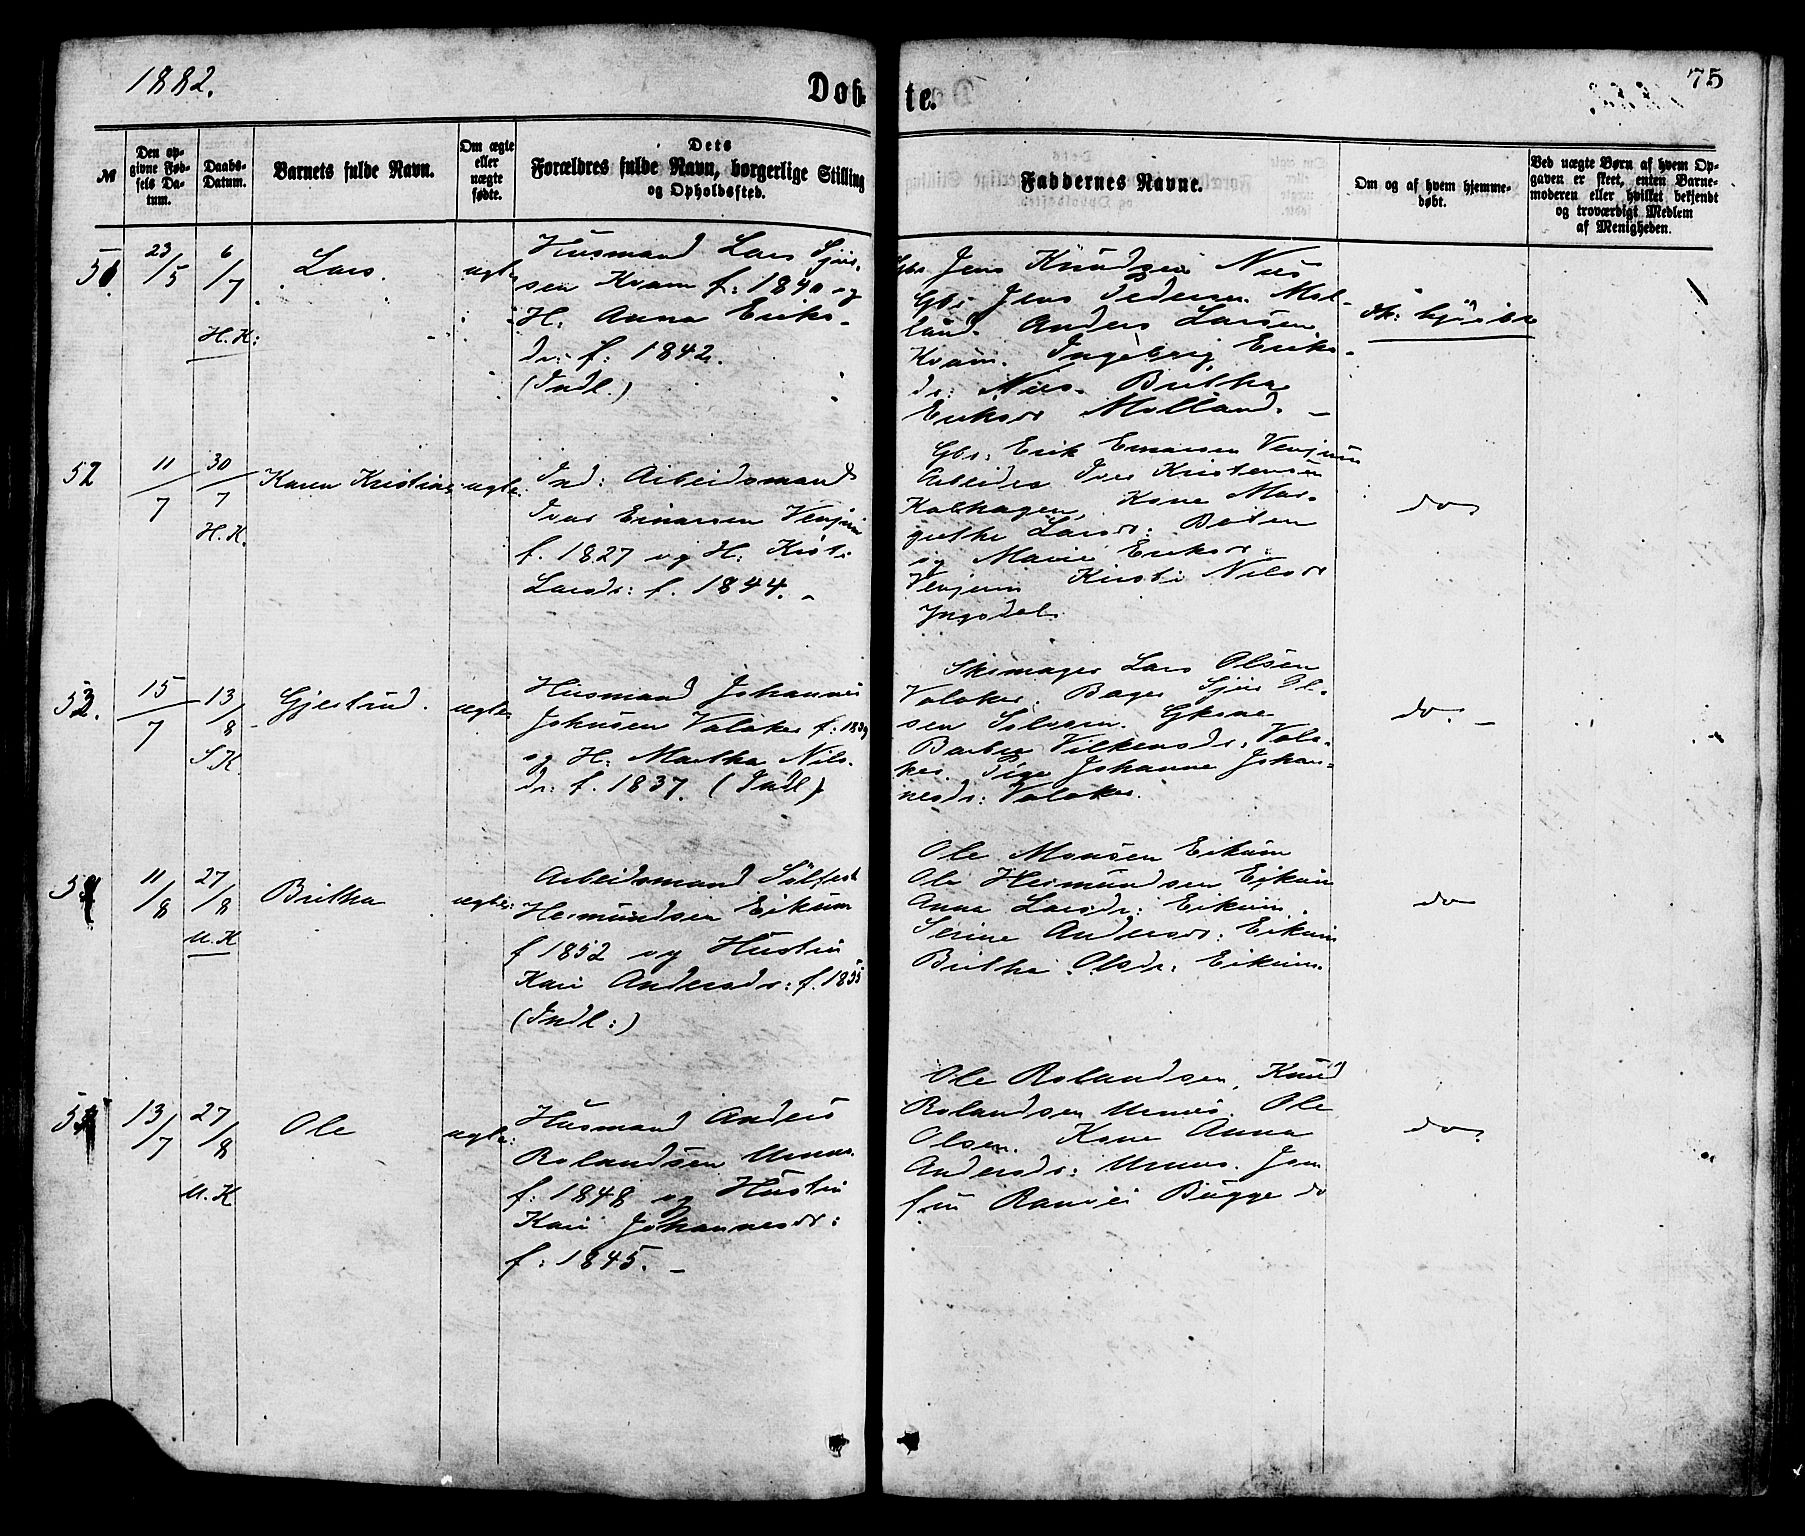 1882.
Døb-
te.
75
№
Den op-
givne Fød-
sels Da-
tum.
Daabs-
Datum.
Barnets fulde Navn.
Om ægte
eller
uægte
fødte.
Dets
Forældres fulde Navn, borgerlige Stilling
og Opholdssted.
Faddernes Navne.
Om og af hvem hjemme-
døbt.
Ved uægte Børn af hvem Op-
gaven er skeet, enten Barne-
moderen eller hvilket bekjendt
og troværdigt Medlem
af Menigheden.
51.
23/5
6/7
H. K:
Lars.
ægte
Husmand Lars Sjur-
sen Kvam f: 1840 og
H: Anna Eriks-
dr: f: 1842.
(Indl.)
Gbr Jens Knudsen Næs
Gbr Jens Pedersen Mol-
land. Anders Larsen
Kvam. Ingebrig Eriks-
dr: Næs. Britha
Eriksdr Molland. –
52
11/7
30/7
H. K.
Karen Kristine
ægte
Ind: Arbeidsmand
Ivar Einarsen Venjum
f. 1827 og H. Kisti
Larsdr: f. 1844. –
Gbr: Erik Einarsen Venjum
Arbeider Iver Kristensen
Kalhagen, Kone Mar-
grethe Larsdr:
og Marie Eriksdr:
Venjum Kirsti Nilsdr
Yngsdal.
do
53.
15/7
13/8
S. K.
Gjertrud.
ægte
Husmand Johannes
Johnsen Valaker f: 1839
og H. Martha Nils-
dr: f. 1837. (Indl)
Skomager Lars Olsen
Valaker. Bager Sjur Ol-
sen Solvorn. Gkone
Barbra Vilkensdr: Vala-
ker. Pige Johanne Johan-
nesdr: Valaker.
do. –
54
11/8
27/8
U. K
Britha
ægte:
Arbeidsmand Sølfest
Hermundsen Eikum
f 1852 og Hustru
Kari Andersdr: f. 1855
(Indl:)
Ole Monsen Eikum
Ole Hermundsen Eikum
Anna Larsdr: Eikum.
Serine Andersdr: Eikum
Britha Olsdr: Eikum.
do
55
13/7
27/8
U. K
Ole
ægte:
Husmand Anders
Rolandsen Urnes
f: 1848 og Hustru
Kari Johannesdr:
f: 1845. –
Ole Rolandsen, Knud
Rolandsen Urnes. Ole
Olsen. Kone Anna
Andersdr: Urnes. Jom-
fru Ranvei Bugge do
do.